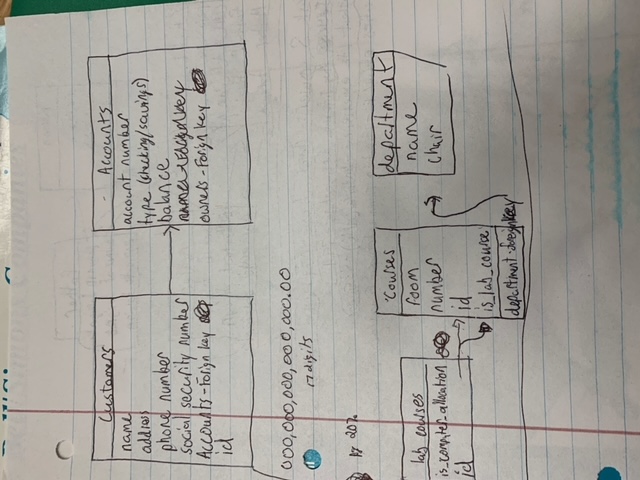 Bell Simons Companies
Customers
name
address
phone number
social security number
Accounts - Forign key
id
Accounts
account number
type (checking/savings)
balance
owners - Forign key
000,000,000,000,000.00
17 digits
20%
lab courses
is_computer_allocation
id
Courses
room
number
id
is_lab_course
department-foreignkey
department
name
chair